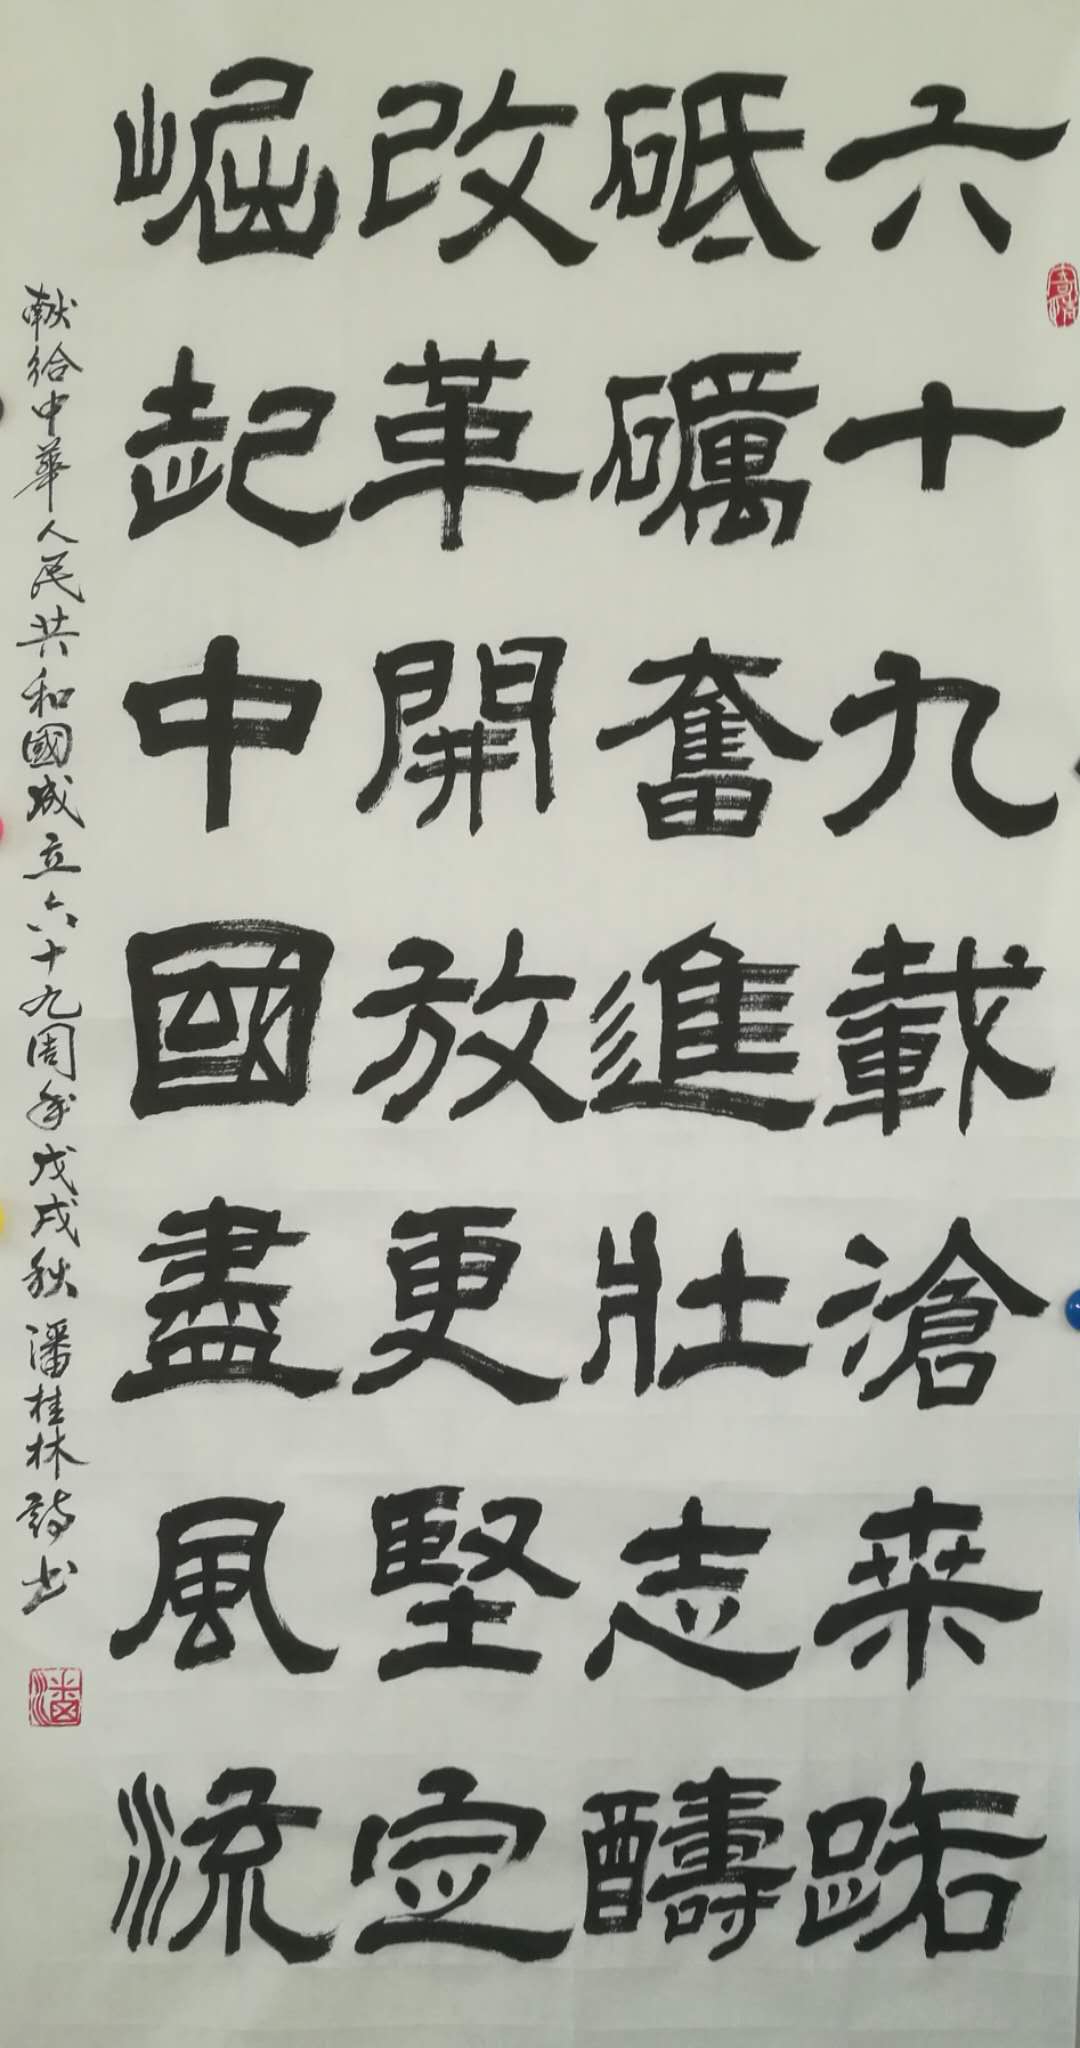 六十九載滄来路
砥礪奮進壯志醻
改革開放更堅定
崛起中國盡風流
献给中華人民共和國成立六十九周年戊戌秋潘桂林詩书
潘